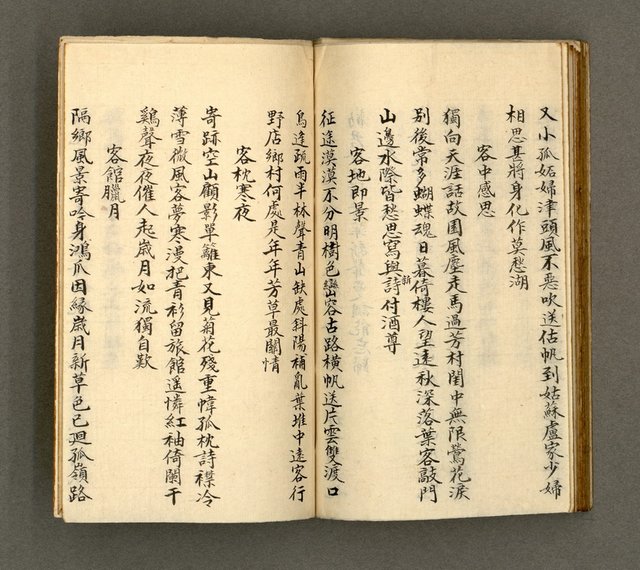 又小孤姑婦津頭風不惡吹送估帆到姑蘇盧家少婦
相思甚將身化作莫愁湖
客中感思
獨向天涯話故園風塵走馬過芳村閨中無限鶯花淚
別後常多蝴蝶魂日暮倚樓人望遠秋深落葉客敲門
山邊水際皆愁思寫與新詩付酒尊
客地即景
征途漠漠不分明樹色巒容古路橫帆送片雲雙渡口
鳥逢疏雨半林聲青山缺處斜陽補亂葉堆中遠客行
野店鄉村何處是年年芳草最關情
客枕寒夜
寄跡空山顧影單籬東又見菊花殘重幃孤枕詩襟冷
薄雪微風客夢寒漫把青衫留旅館遥憐紅袖倚闌干
鷄聲夜夜催人起歲月如流獨自歎
客館臘月
隔鄉風景寄吟身鴻爪因緣歲月新草色已迴孤嶺路